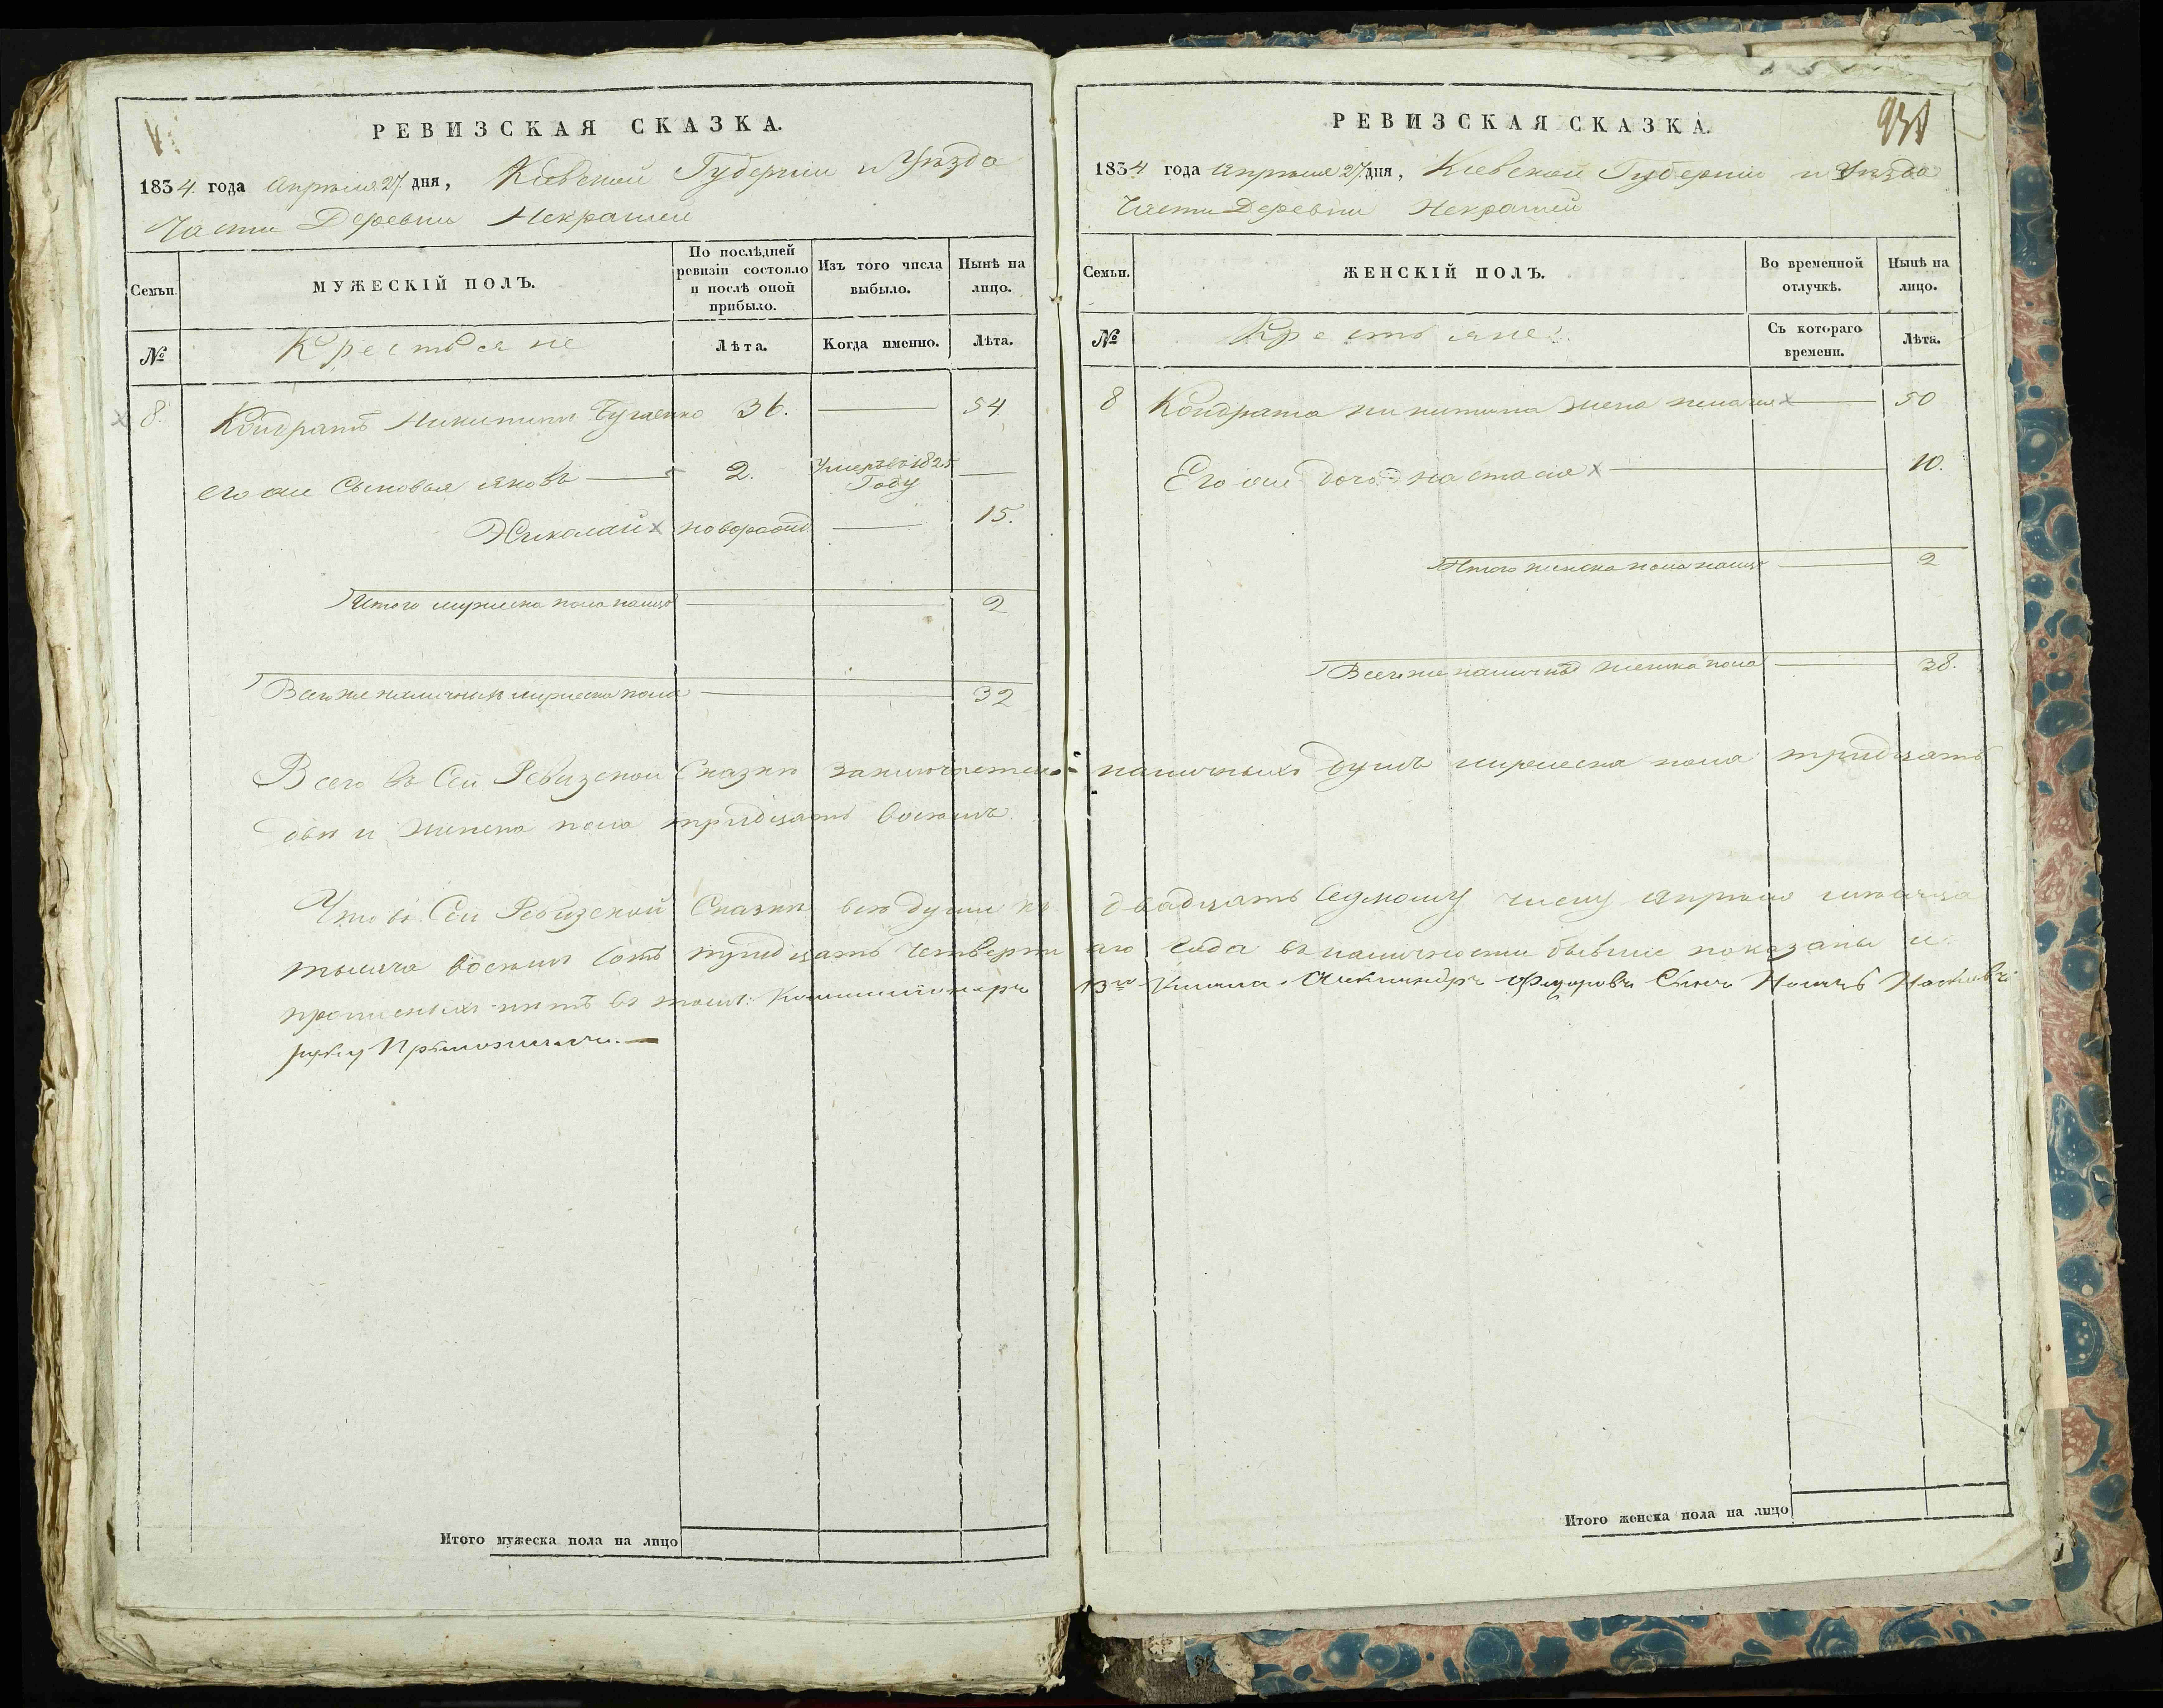 РЕВИЗСКАЯ СКАЗКА.
1834 года Апреля 27 дня, Кіевской Губерніи и Уезда
Части Деревни Некрашей
Семьи.
МУЖЕСКІЙ ПОЛЪ.
По послѣдней ревизіи состояло и послѣ оной прибыло.
Изъ того числа выбыло.
Нынѣ на лицо.
№
Крестьяне
Лѣта.
Когда именно.
Лѣта.
8. Кондратъ Никитинъ 36. 54
его же Сыновья Яковъ 2. Умеръ въ 1825 Году
Николай новорожд 15.
Итого мужеска пола налицо 2
Всего же наличныхъ мужеска пола 32
РЕВИЗСКАЯ СКАЗКА.
1834 года Апреля 27 дня, Кіевской Губерніи и Уезда
Части Деревни Некрашей
Семьи.
ЖЕНСКІЙ ПОЛЪ.
Во временной отлучкѣ.
Нынѣ на лицо.
№
Крестьяне
Съ котораго времени.
Лѣта.
8 Кондрата Никитина жена 50
Его же дочь Настасія 10.
Итого женска пола налицо 2
Всего же наличныхъ женска пола 38.
Всего въ Сей Ревизской Сказкѣ заключается наличныхъ душъ мужеска пола тридцать
два и женска пола тридцать восемь.
Что въ Сей Ревизской Сказкѣ все души къ двадцать Седмому числу Апреля месяца
тысяча восемь сотъ тридцать четвертаго года въ наличности бывшие показаны и
прописныхъ нетъ въ томъ: Коммисіонеръ 13го Класа Александръ Федоровъ Сынъ
руку Приложилъ.
Итого мужеска пола на лицо
Итого женска пола на лицо